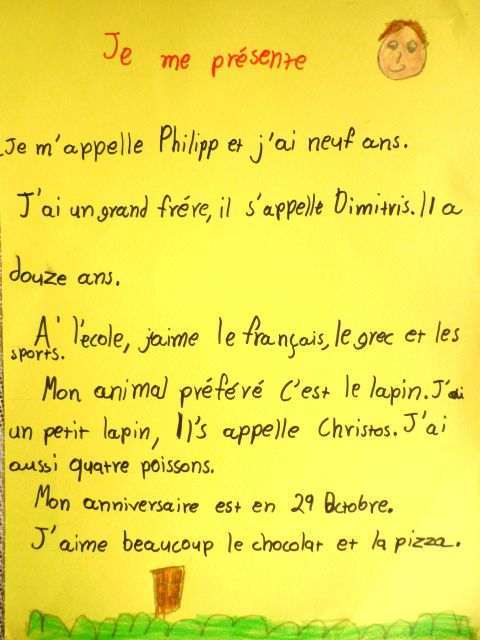 Je me présente
Je m'appelle Philipp et j'ai neuf ans.
J'ai un grand frére, il s'appelle Dimitris. Il a
douze ans.
A' l'ecole, j'aime le français, le grec et les
sports.
Mon animal préféré C'est le lapin. J'ai
un petit lapin, Il's appelle Christos. J'ai
aussi quatre poissons.
Mon anniversaire est en 29 Octobre.
J'aime beaucoup le chocolat et la pizza.